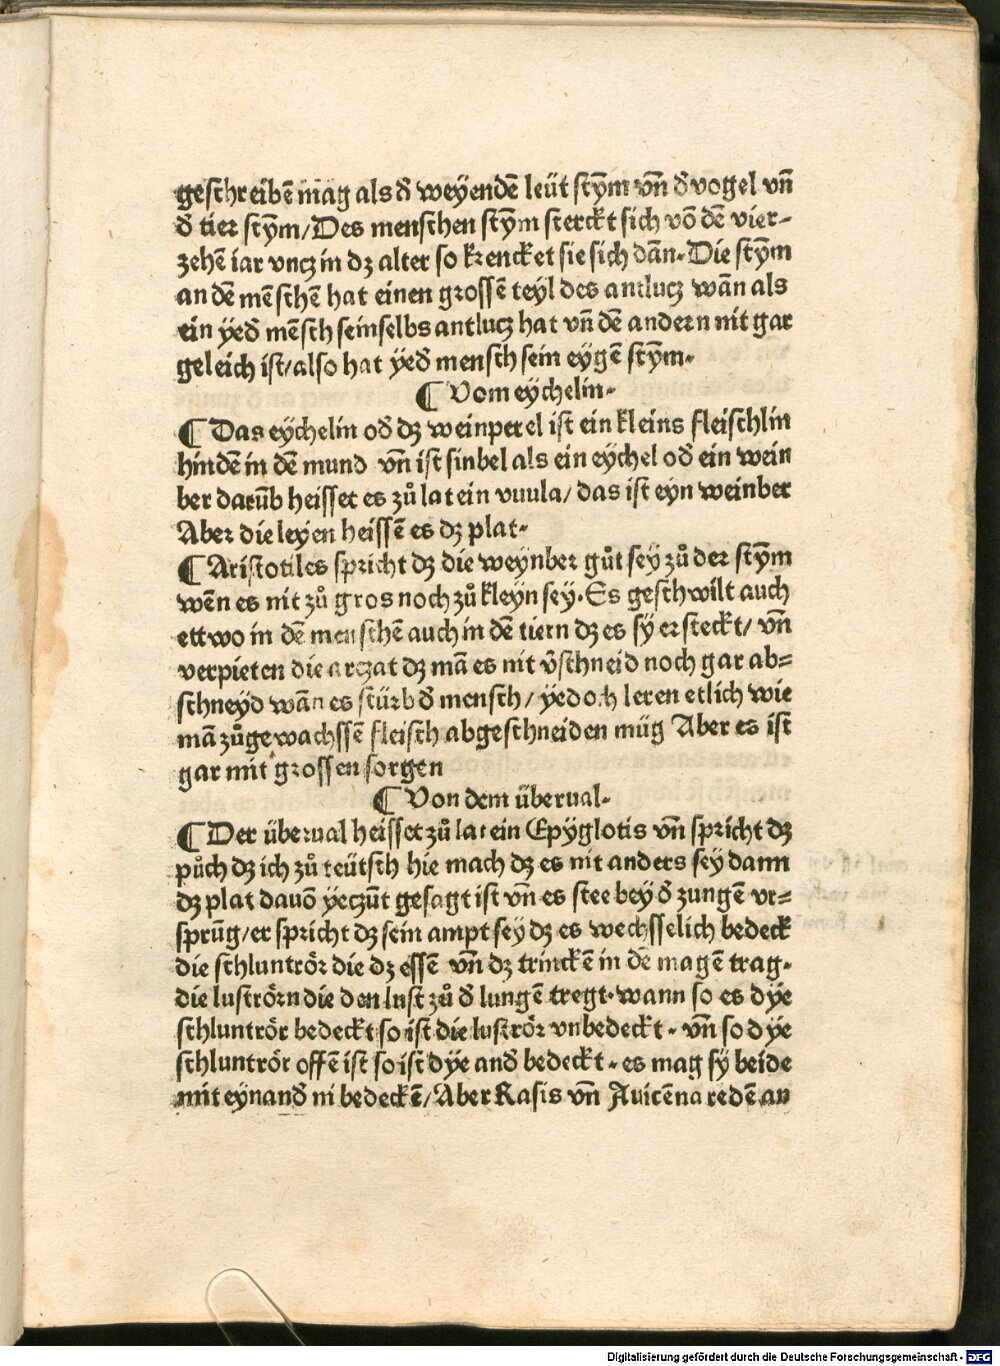 geſchreibē mag als đ weÿendē leüt ſtÿm vñ đ vogel vñ
đ tier ſtÿm/Des menſchen ſtÿm ſterckt ſich võ dē vier-
zehē iar vncz in dz alter ſo krencket ſie ſich dān. Die ſtÿm
an dē mēſchē hat einen groſſē teyl des antlucz wān als
ein ÿeđ mēſch ſeinſelbs antlucz hat vñ dē andern nit gar
geleich iſt/alſo hat ÿeđ menſch ſein eÿgē ſtÿm.
¶ Vom eÿchelin.
¶ Das eÿchelin ođ dz weinperel iſt ein kleins fleiſchlin
hindē in dē mund vñ iſt ſinbel als ein eÿchel ođ ein wein
ber darūb heiſſet es zů latein vuula/ das iſt eyn weinber
Aber die leyen heiſſē es dz plat.
¶ Ariſtotiles ſpricht dz die weÿnber gůt ſey zů der ſtÿm
wēn es nit zů gros noch zů kleÿn ſey. Es geſchwilt auch
ettwo in dē menſchē auch in dē tiern dz es ſÿ erſteckt/ vñ
verpieten die arczat dz mā es nit v̄ſchneid noch gar ab=
ſchneÿd wān es ſtürb đ menſch/ ÿedoch leren etlich wie
mā zůgewachſſē fleiſch abgeſchneiden müg Aber es iſt
gar mit groſſen ſorgen
¶ Von dem überual.
¶ Der überual heiſſet zů latein Epÿglotis vñ ſpricht dz
půch dz ich zů teütſch hie mach dz es nit anders ſey dann
dz plat dauõ ÿeczūt geſagt iſt vñ es ſtee bey đ zungē vr=
ſprūg/er ſpricht dz ſein ampt ſey dz es wechſſelich bedeck
die ſchluntrör die dz eſſē vñ dz trinckē in dē magē trag.
die luftrörn die den luft zů đ lungē tregt. wann ſo es dÿe
ſchluntrör bedeckt ſo iſt die luftrör vnbedeckt. vñ ſo dÿe
ſchluntrör offē iſt ſo iſt dÿe anđ bedeckt. es mag ſÿ beide
mit eÿnanđ ni bedeckē/Aber Raſis vñ Auicēna redē an
Digitalisierung gefördert durch die Deutsche Forschungsgemeinschaft - DFG